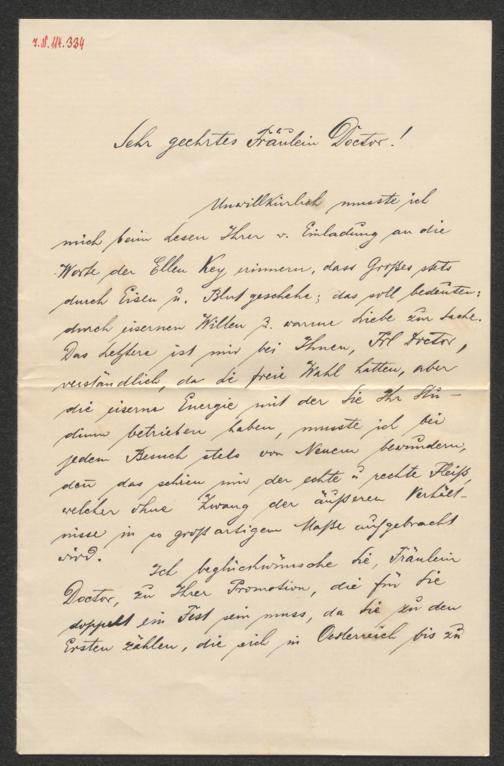 Sehr geehrtes Fräulein Doctor!
Unwillkürlich musste ich
mich beim Lesen Ihrer v. Einladung an die
Worte der Ellen Key erinnern, dass Großes stets
durch Eisen u. Blut geschehe; das soll bedeuten:
durch eisernen Willen u. warme Liebe zur Sache.
Das letztere ist mir bei Ihnen, Frl Doctor,
verständlich, da Sie freie Wahl hatten, aber
die eiserne Energie mit der Sie Ihr Stu-
dium betrieben haben, musste ich bei
jedem Besuch stets von Neuem bewundern,
den, das schien mir der echte u rechte Fleiß,
welcher ohne Zwang der äußeren Verhält-
nisse in so großartigem Maße aufgebracht
wird.
Ich beglückwünsche Sie, Fräulein
Doctor, zu Ihrer Promotion, die für Sie
doppelt ein Fest sein muss, da Sie zu den
Ersten zählen, die sich in Oesterreich bis zu